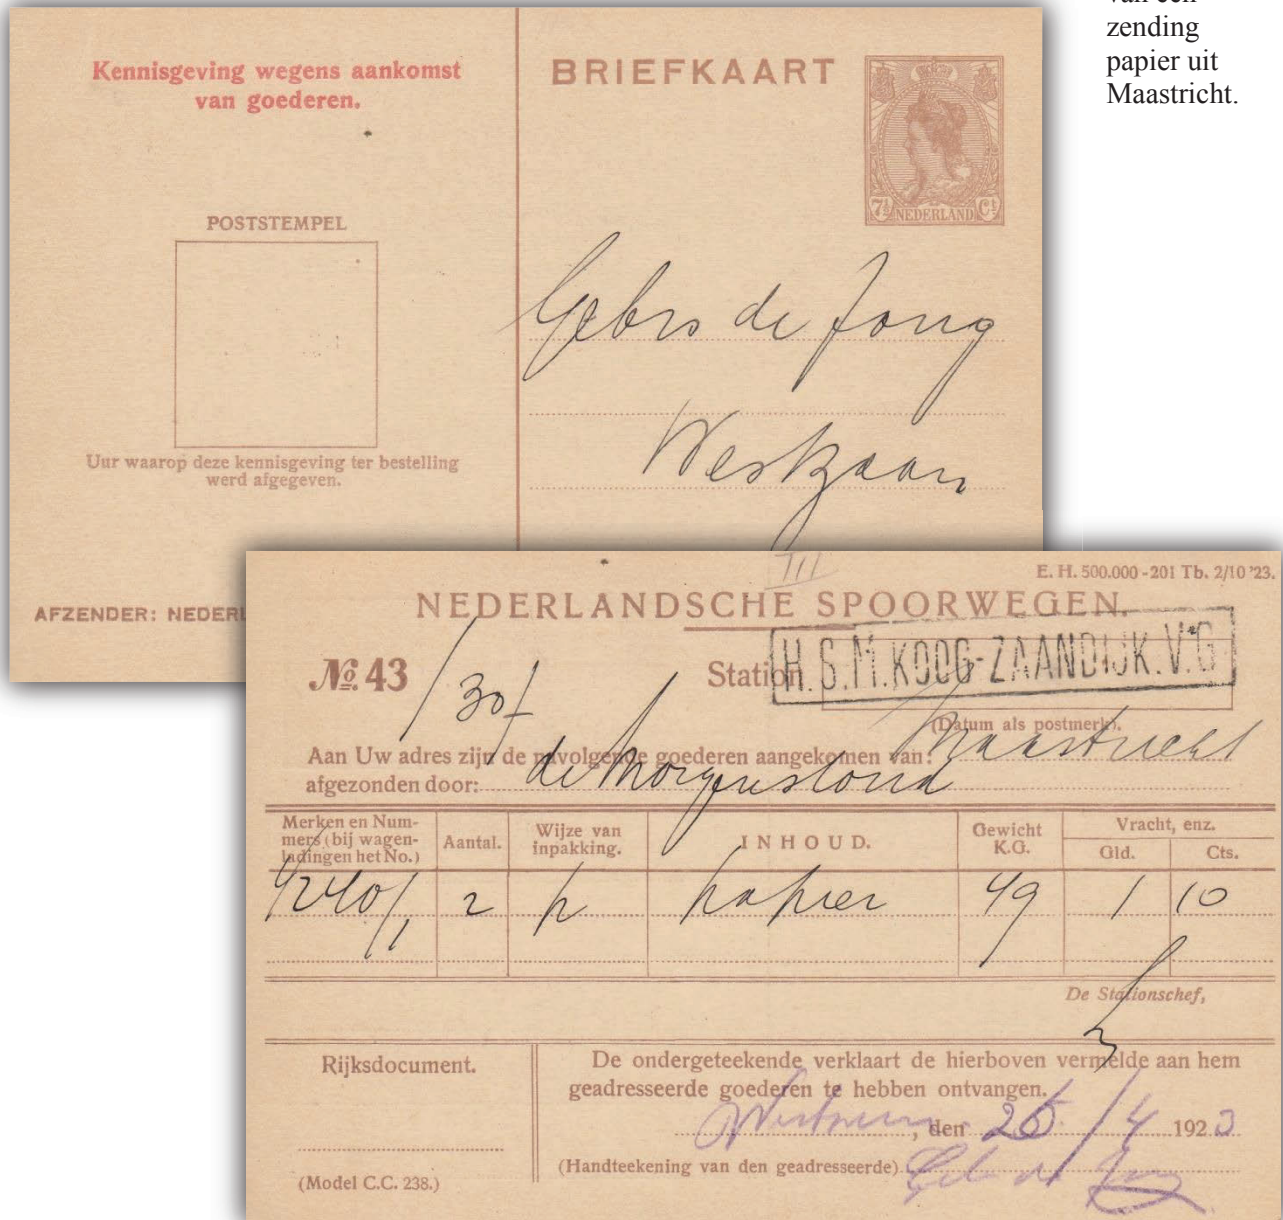 van een
zending
papier uit
Maastricht.
Kennisgeving wegens aankomst
van goederen.
POSTSTEMPEL
Uur waarop deze kennisgeving ter bestelling
werd afgegeven.
AFZENDER: NEDERL
BRIEFKAART
7½ NEDERLAND Ct
Gebrs de Jong
Westzaan
III
E. H. 500.000 - 201 Tb. 2/10 '23.
NEDERLANDSCHE SPOORWEGEN.
№ 43
Station
H.S.M. KOOG-ZAANDIJK. V.G
30/
(Datum als postmerk).
Aan Uw adres zijn de navolgende goederen aangekomen van: Maastricht
afgezonden door: de Morgenstond
Merken en Num-
mers (bij wagen-
ladingen het No.)
Aantal.
Wijze van
inpakking.
INHOUD.
Gewicht
K.G.
Vracht, enz.
Gld. Cts.
4240/1 2 p papier 49 1 10
De Stationschef,
Rijksdocument.
(Model C.C. 238.)
De ondergeteekende verklaart de hierboven vermelde aan hem
geadresseerde goederen te hebben ontvangen.
Westzaan, den 25/4 1923
(Handteekening van den geadresseerde) Gebr de Jong